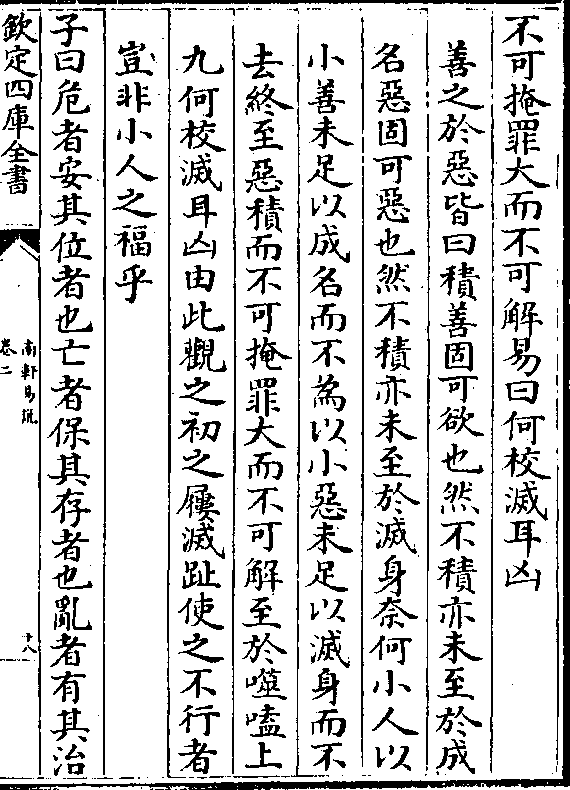 不可掩罪大而不可解易曰何校滅耳凶
善之於惡皆曰積善固可欲也然不積亦未至於成
名惡固可惡也然不積亦未至於滅身奈何小人以
小善未足以成名而不為以小惡未足以滅身而不
去終至惡積而不可掩罪大而不可解至於噬嗑上
九何校滅耳凶由此觀之初之屨滅趾使之不行者
豈非小人之福乎
子曰危者安其位者也亡者保其存者也亂者有其治
欽定四庫全書
南軒易說
卷二
十八